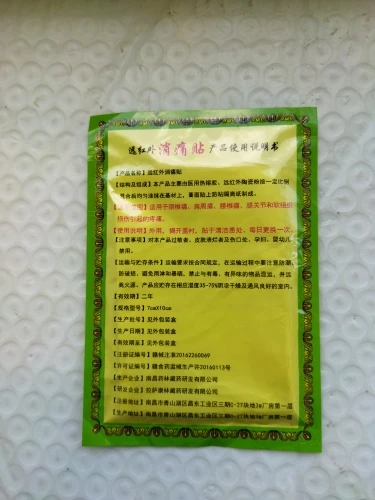 远红外消痛贴产品使用说明书
【产品名称】远红外消痛贴
【结构及组成】本产品主要由医用热熔胶、远红外陶瓷粉按一定比例
混合板均匀涂抹在基材上,覆面贴上防粘隔离纸制成。
【适用范围】适用于颈椎痛、肩周痛、腰椎痛、膝关节和软组织
损伤引起的疼痛。
【使用说明】外用。揭开面衬,贴于清洁患处,每日更换一次。
【注意事项】对本产品过敏者、皮肤溃烂者及伤口处、孕妇、婴幼儿
禁用。
【运输与贮存条件】运输要求按合同规定,在运输过程中要注意防潮、
防破损,避免雨淋和暴晒。禁止与有毒、有异味的物品混运,并远
离火源。产品应贮存在相应湿度35-75%阴凉干燥及通风良好的室内。
【有效期】二年
【规格型号】7cmX10cm
【生产批号】见外包装盒
【生产日期】见外包装盒
【有效期至】见外包装盒
【注册证编号】赣械注准20162260069
【许可证编号】赣食药监械生产许20160113号
【生产企业】南昌药林藏药研发有限公司
【研发企业】拉萨康林藏药研发有限公司
【注册地址】南昌市青山湖区昌东工业区三期C-27块地3#厂房第一层
【生产地址】南昌市青山湖区昌东工业区三期C-27块地3#厂房第一层